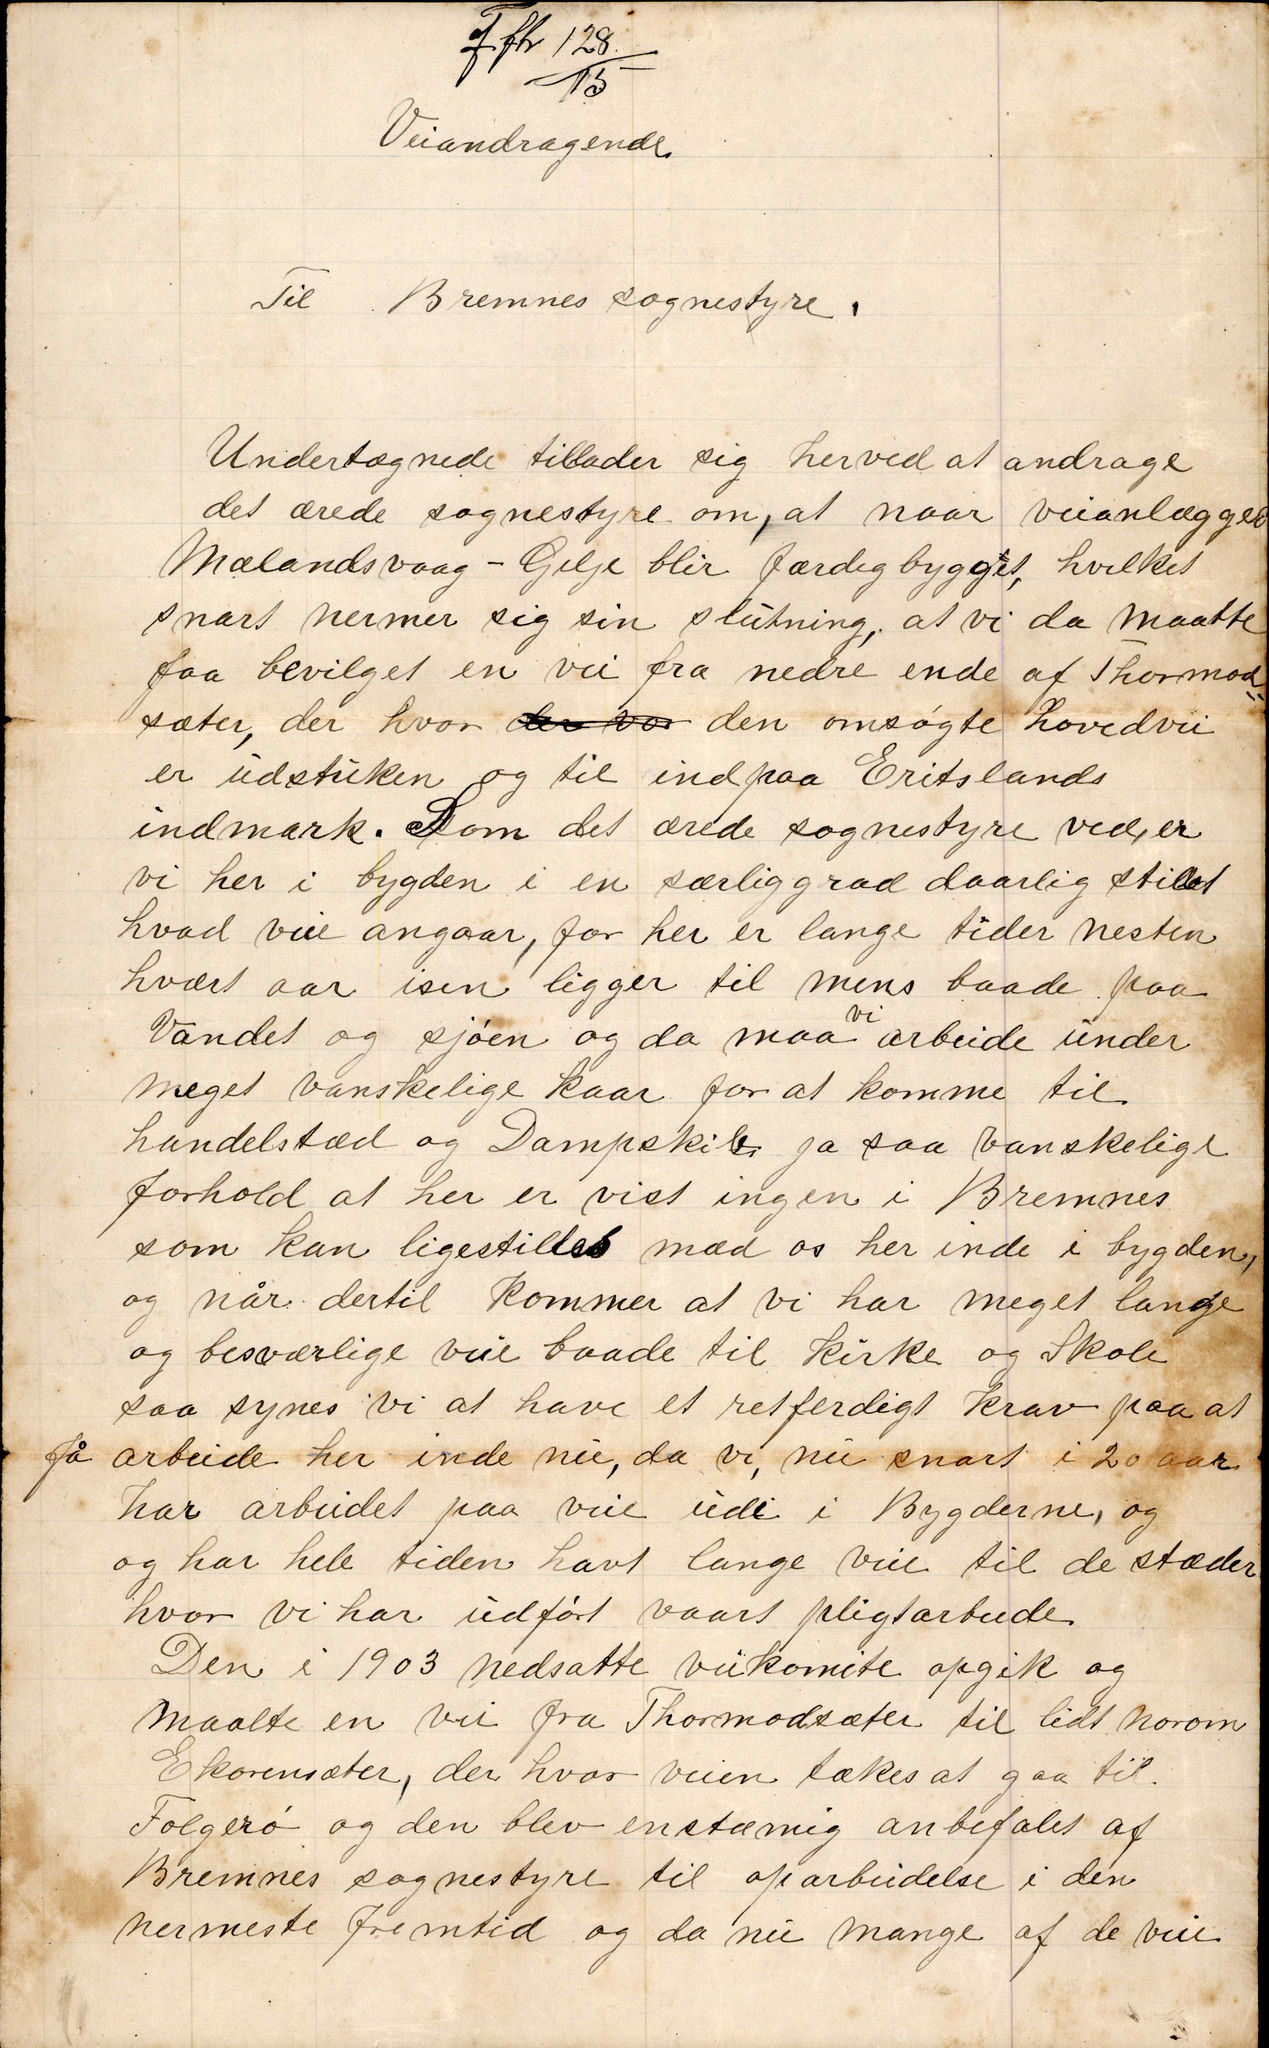 128
15
Veiandragende
Til Bremnes sognestyre.
Undertægnede tillader sig herved at andrage
det ærede sognestyre om, at naar veianlægget
Mælandsvaag - Gilje blir færdigbygget, hvilket
snart nermer sig sin slutning, at vi da maatte
faa bevilget en vei fra nedre ende af Thormod=
sæter, der hvor der var den omsøgte hovedvei
er udstuken og til indpaa Eritslands
indmark. Som det ærede sognestyre ved, er
vi her i bygden i en særliggrad daarlig stillet
hvad veie angaar, for her er lange tider nesten
hvært aar isen ligger til mens baade paa
Vandet og sjøen og da maa vi arbeide under
meget vanskelige kaar for at komme til
handelstæd og Dampskib, ja saa vanskelige
forhold at her er vist ingen i Bremnes
som kan ligestilles mæd os her inde i bygden,
og når dertil kommer at vi har meget lange
og besværlige veie baade til kirke og Skole
saa synes vi at have et retferdigt krav paa at
få arbeide her inde nu, da vi, nu snart i 20 aar
har arbeidet paa veie ude i Bygderne, og
og har hele tiden havt lange veie til de stæder
hvor vi har udført vaart pligtarbeide
Den i 1903 nedsatte veikomite opgik og
maalte en vei fra Thormodsæter til lidt norom
Ekorensæter, der hvor veien tækes at gaa til
Folgerø og den blev enstæmig anbefalet af
Bremnes sognestyre til oparbeidelse i den
nermeste fremtid og da nu mange af de veie